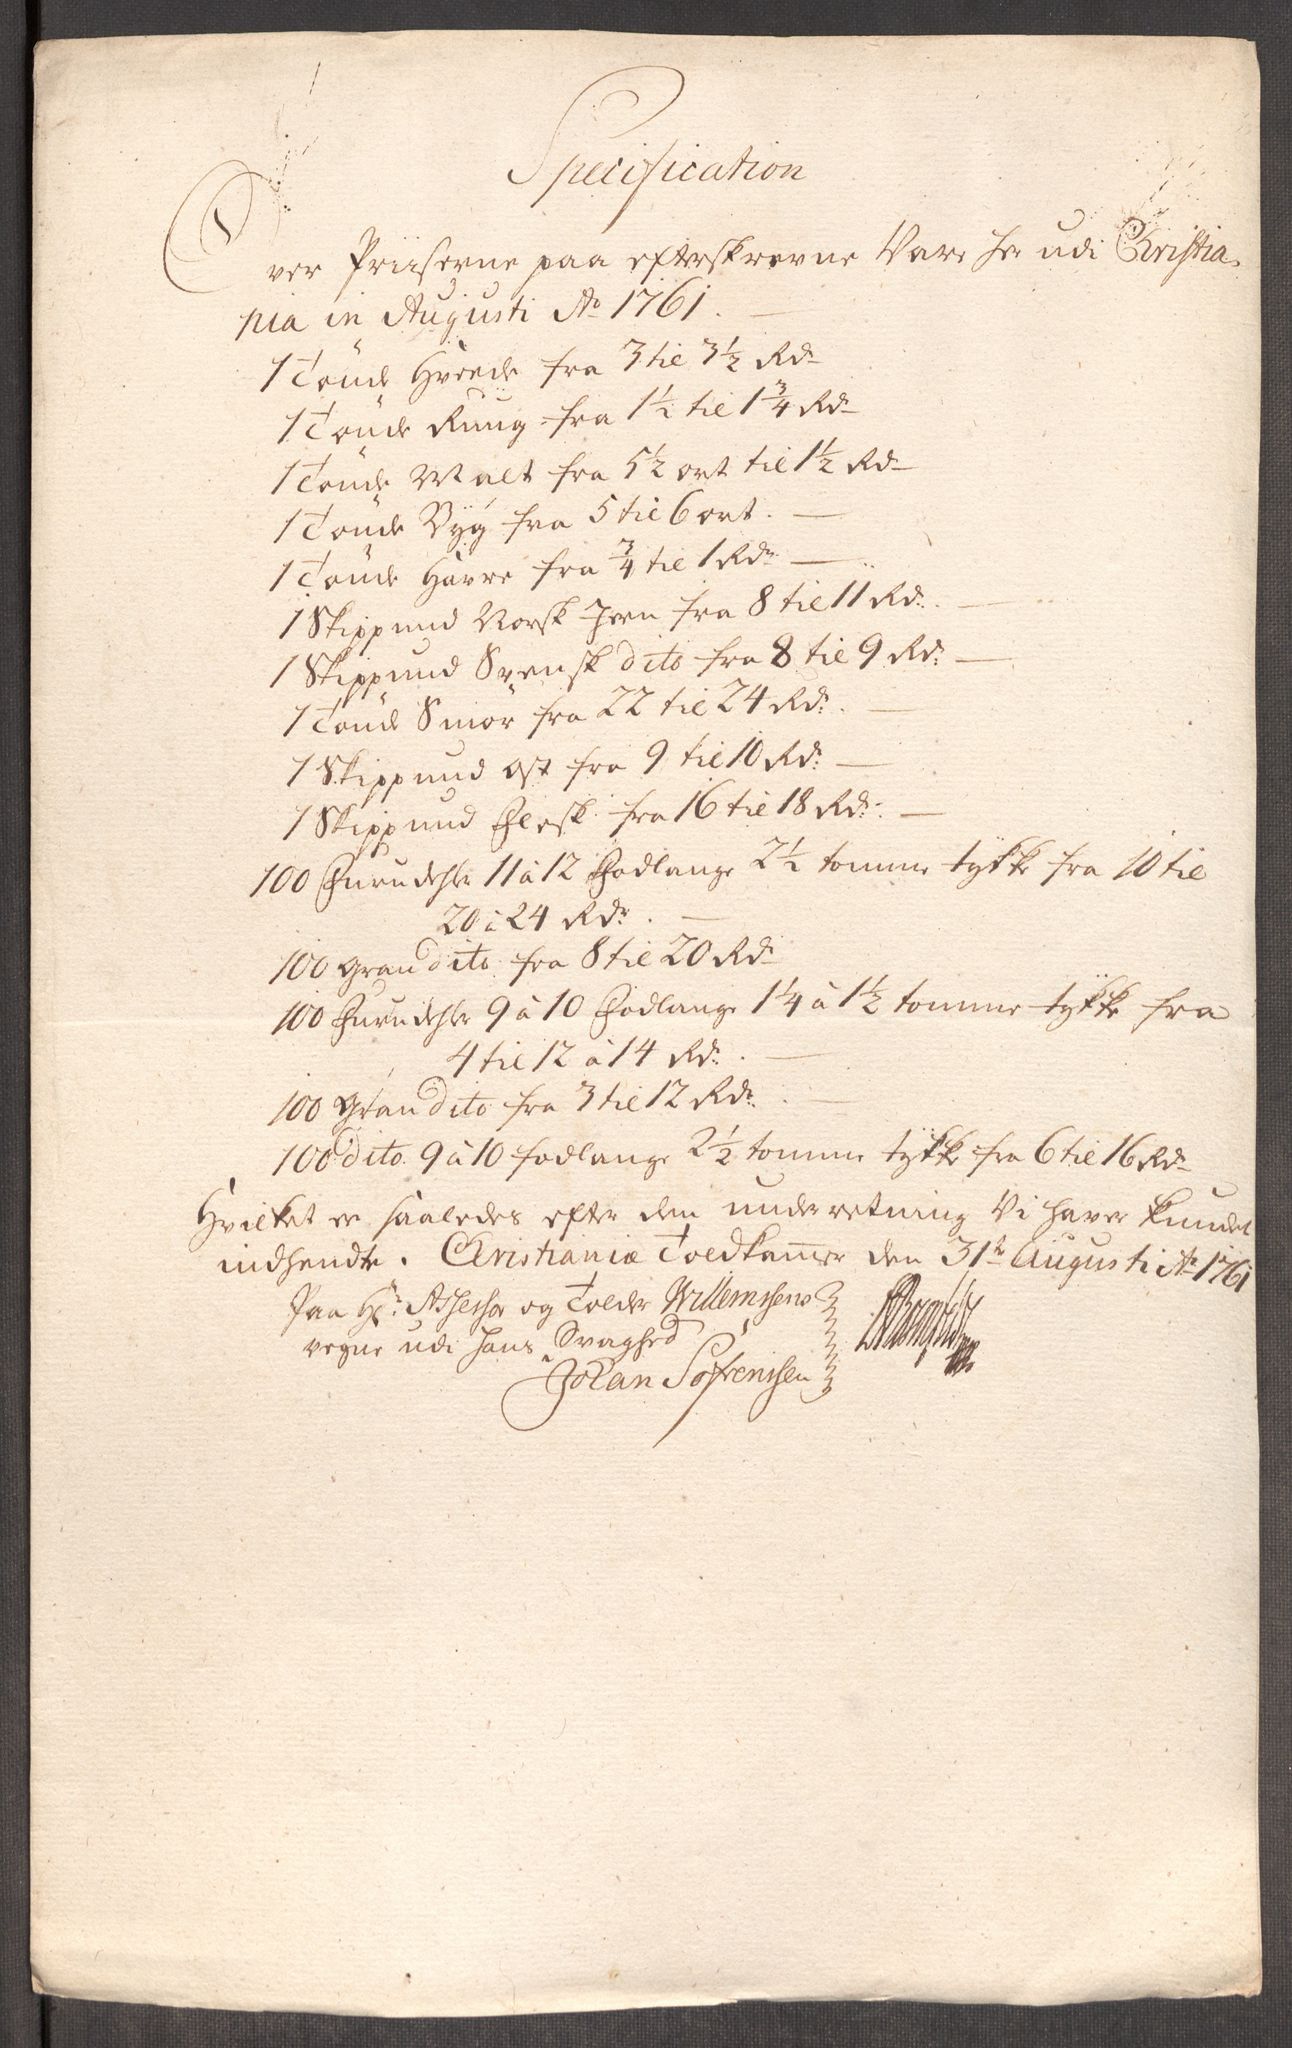 Specification
Over Priiserne paa efterskrevne Vare her udi Christia-
nia in Augusti Ao 1761.
1 Tönde Hvede fra 3 til 3 1/2 Rdr
1 Tönde Rung fra 1 1/2 til 1 3/4 Rdr
1 Tönde Malt fra 5 1/2 ort til 1 1/2 Rdr
1 Tönde Byg fra 5 til 6 ort.
1 Tönde Havre fra 3/4 til 1 Rdr
1 Skippund Norsk Jern fra 8 til 11 Rdr.
1 Skippund Svensk dito fra 8 til 9 Rdr.
1 Tönde Smör fra 22 til 24 Rdr.
1 Skippund Ost fra 9 til 10 Rdr.
1 Skippund Flesk fra 16 til 18 Rdr.
100 Furudehler 11 à 12 Fodlange 2 1/2 tomme tykke fra 10 til
20 à 24 Rdr.
100 Gran dito fra 8 til 20 Rdr
100 Furudehler 9 à 10 Fodlange 1 1/4 à 1 1/2 tomme tykke fra
4 til 12 à 14 Rdr.
100 Gran dito fra 3 til 12 Rdr.
100 dito 9 à 10 fodlange 2 1/2 tomme tykke fra 6 til 16 Rdr
Hvilket er saaledes efter den underretning Vi haver kundet
indhendte. Christianiæ Toldkammer den 31te Augusti Ao 1761
Paa Hr. Assessor og Tolder Willemsens
vegne udi hans Svaghed
Johan Sofrenssen